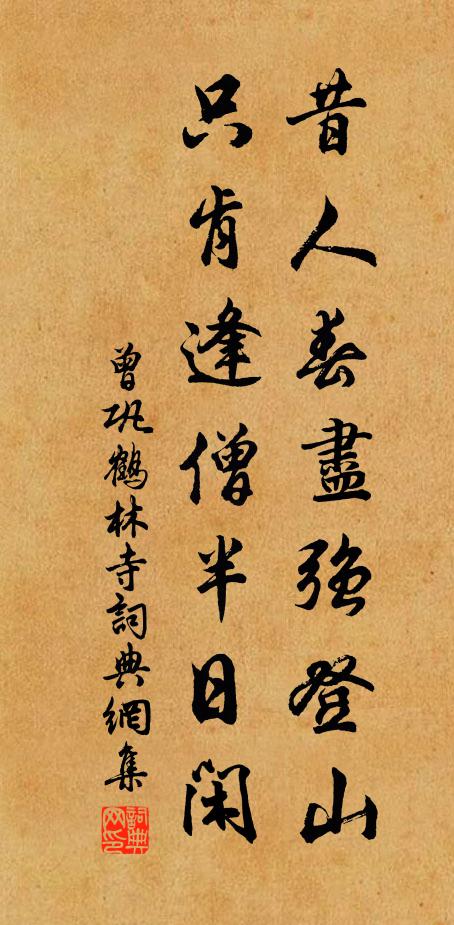 昔人春盡強登山
只肯逢僧半日閑
曾巩鶴林寺詞典網集
詞典网印